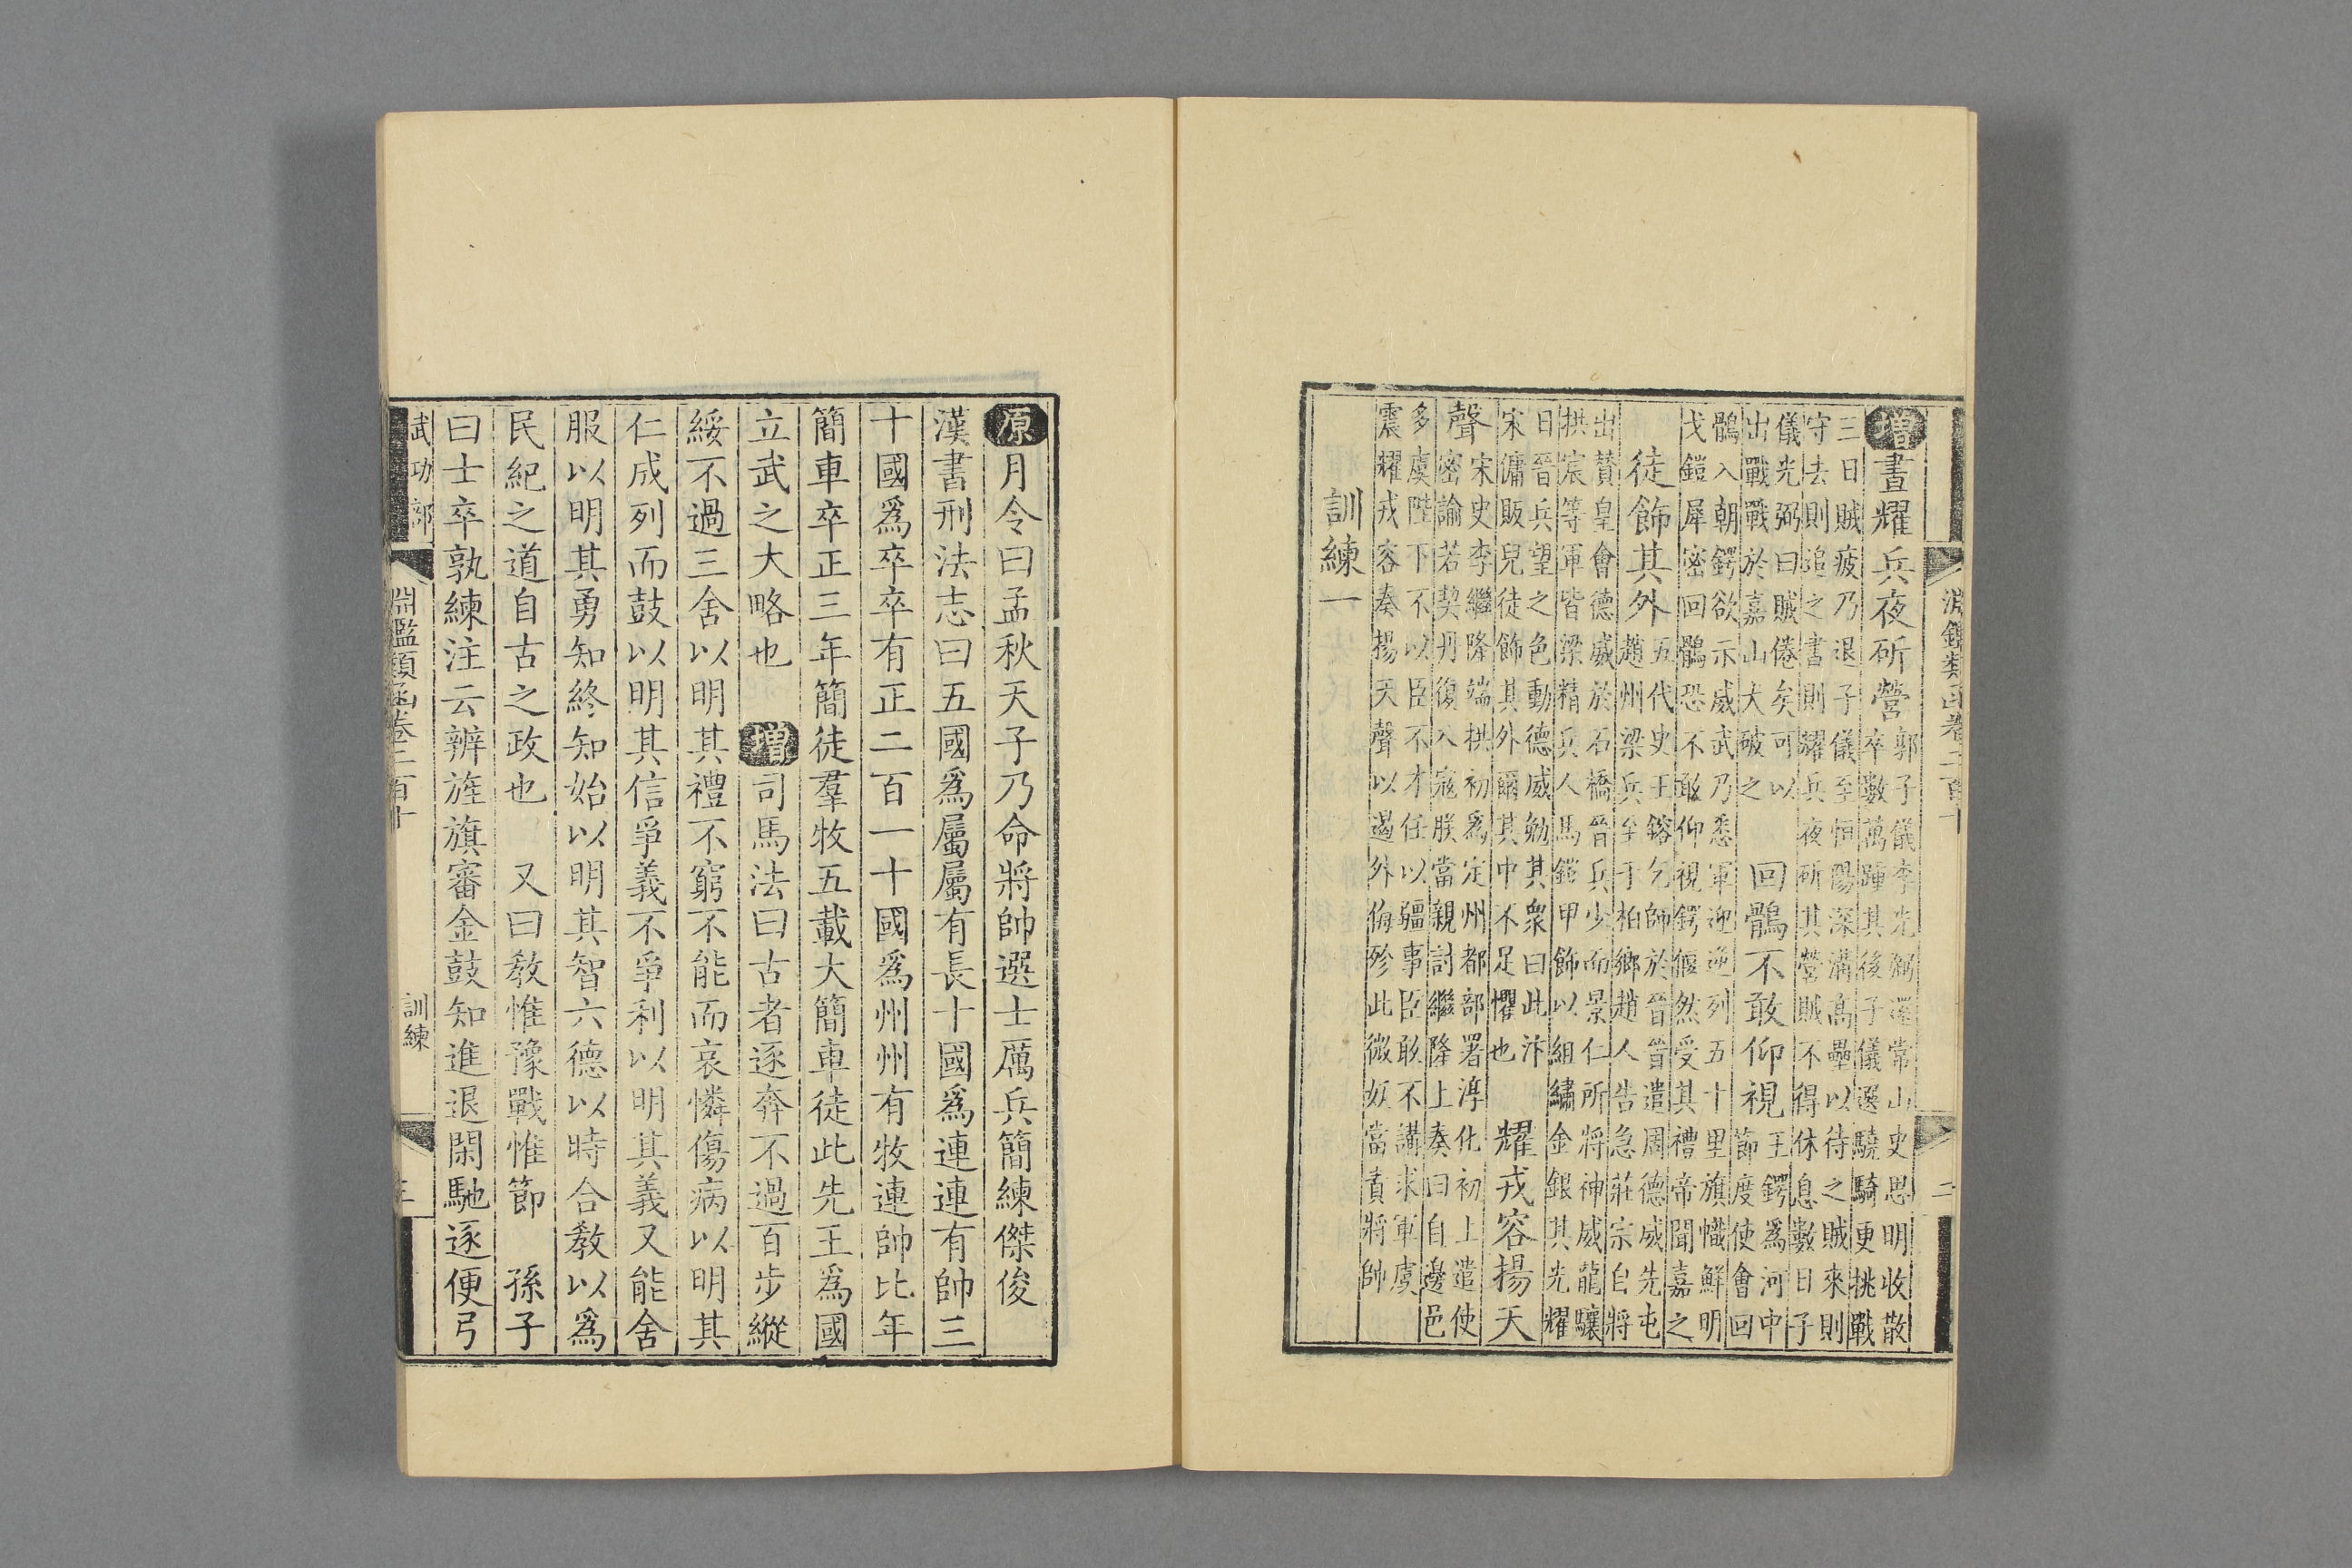 淵鑑類函卷二百一十　二
增晝耀兵夜斫營郭子儀李光弼還常山史思明收散
卒數萬踵其後子儀選驍騎更挑戰
三日賊疲乃退子儀至恒陽深溝高壘以待之賊來則
守去則追之書則耀兵夜斫其營賊不得休息數日子
儀光弼曰賊倦矣可以
出戰戰於嘉山大破之
回鶻不敢仰視王鍔爲河中
節度使會回
鶻入朝鍔欲示威武乃悉軍迎逆列五十里旗幟鮮明
戈鎧犀密回鶻恐不敢仰視鍔偃然受其禮帝聞嘉之
徒飾其外五代史王鎔乞師於晉晉遣周德威先屯
趙州梁兵至于柏鄉趙人告急莊宗自將
出贊皇會德威於石橋晉兵少而景仁所將神威龍驤
拱宸等軍皆梁精兵人馬鎧甲飾以組繡金銀其光耀
日晉兵望之色動德威勉其衆曰此汴
宋傭販兒徒飾其外爾其中不足懼也
耀戎容揚天
聲宋史李繼隆端拱初爲定州都部署淳化初上遣使
密諭若契丹復入寇朕當親討繼隆上奏曰自邊邑
多虞陛下不以臣不才任以疆事臣敢不講求軍虞
震耀戎容奏揚天聲以遏外侮殄此微妖當責將帥
訓練一
源月令曰孟秋天子乃命將帥選士厲兵簡練傑俊
漢書刑法志曰五國爲屬屬有長十國爲連連有帥三
十國爲卒卒有正二百一十國爲州州有牧連帥比年
簡車卒正三年簡徒羣牧五載大簡車徒此先王爲國
立武之大略也　增司馬法曰古者逐奔不過百步縱
綏不過三舍以明其禮不窮不能而哀憐傷病以明其
仁成列而鼓以明其信爭義不爭利以明其義又能舍
服以明其勇知終知始以明其智六德以時合敎以爲
民紀之道自古之政也　又曰敎惟豫戰惟節　孫子
曰士卒孰練注云辨旌旗審金鼓知進退閑馳逐便弓
武功部　淵鑑類函卷二百一十　訓練　三